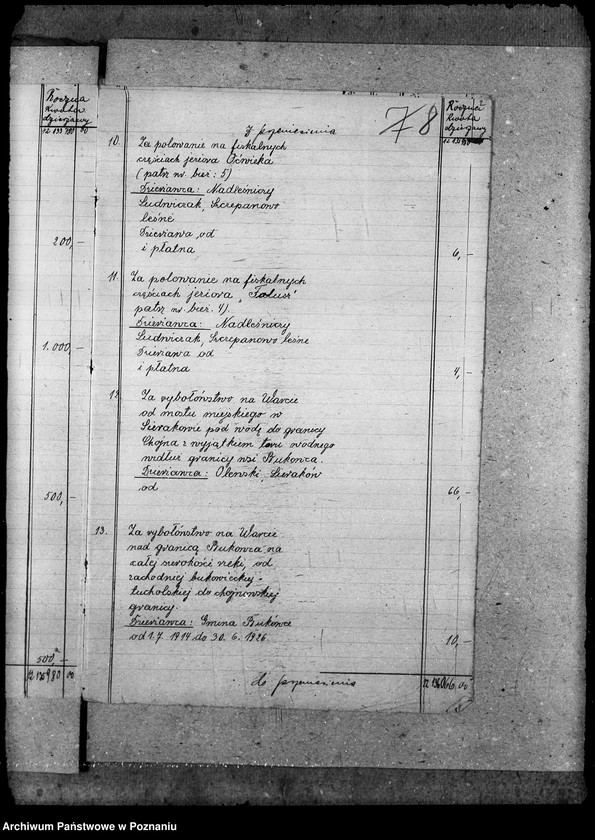 Roczna
kwota
dzierżawy
zł 133 980 00
200,-
1.000,-
500,-
500,-
zł 135 980 00
78
Z przeniesienia
Roczna
kwota
dzierżawy
10. Za polowanie na fiskalnych
częściach jeziora Oćwieka
(patrz nr. bież: 5)
Dzierżawca: Nadleśniczy
Ludwiczak, Szczepanowo
leśne
Dzierżawa od
i płatna
6,-
11. Za polowanie na fiskalnych
częściach jeziora, Folusz"
patrz nr. bież. 4).
Dzierżawca: Nadleśniczy
Ludwiczak, Szczepanowo leśne
Dzierżawa od
i płatna
4,-
12. Za rybołóństwo na Warcie
od mostu miejskiego w
Sierakowie pod wodę do granicy
Chojna z wyjątkiem toru wodnego
wzdłuż granicy wsi Bukowca.
Dzierżawca: Oleński, Sieraków
od
66,-
13. Za rybołóństwo na Warcie
nad granicą Bukowca na
całej szerokości rzeki, od
zachodniej bukowieckiej -
tucholskiej do chojnowskiej
granicy.
Dzierżawca: Gmina Bukówce
od 1.7. 1914 do 30. 6. 1926.
10,-
do przeniesienia
zł 136066,00
Archiwum Państwowe w Poznaniu